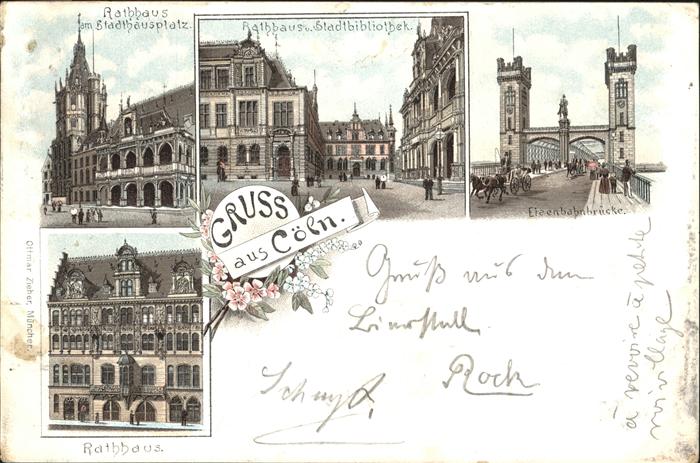 Rathhaus
am Stadthausplatz.
Rathhaus u. Stadtbibliothek.
Eisenbahnbrücke.
GRUSS
aus Cöln.
Rathhaus.
Ottmar Zieher, München.
Gruß aus dem
Bierstall.
Rock
à revoire à petite